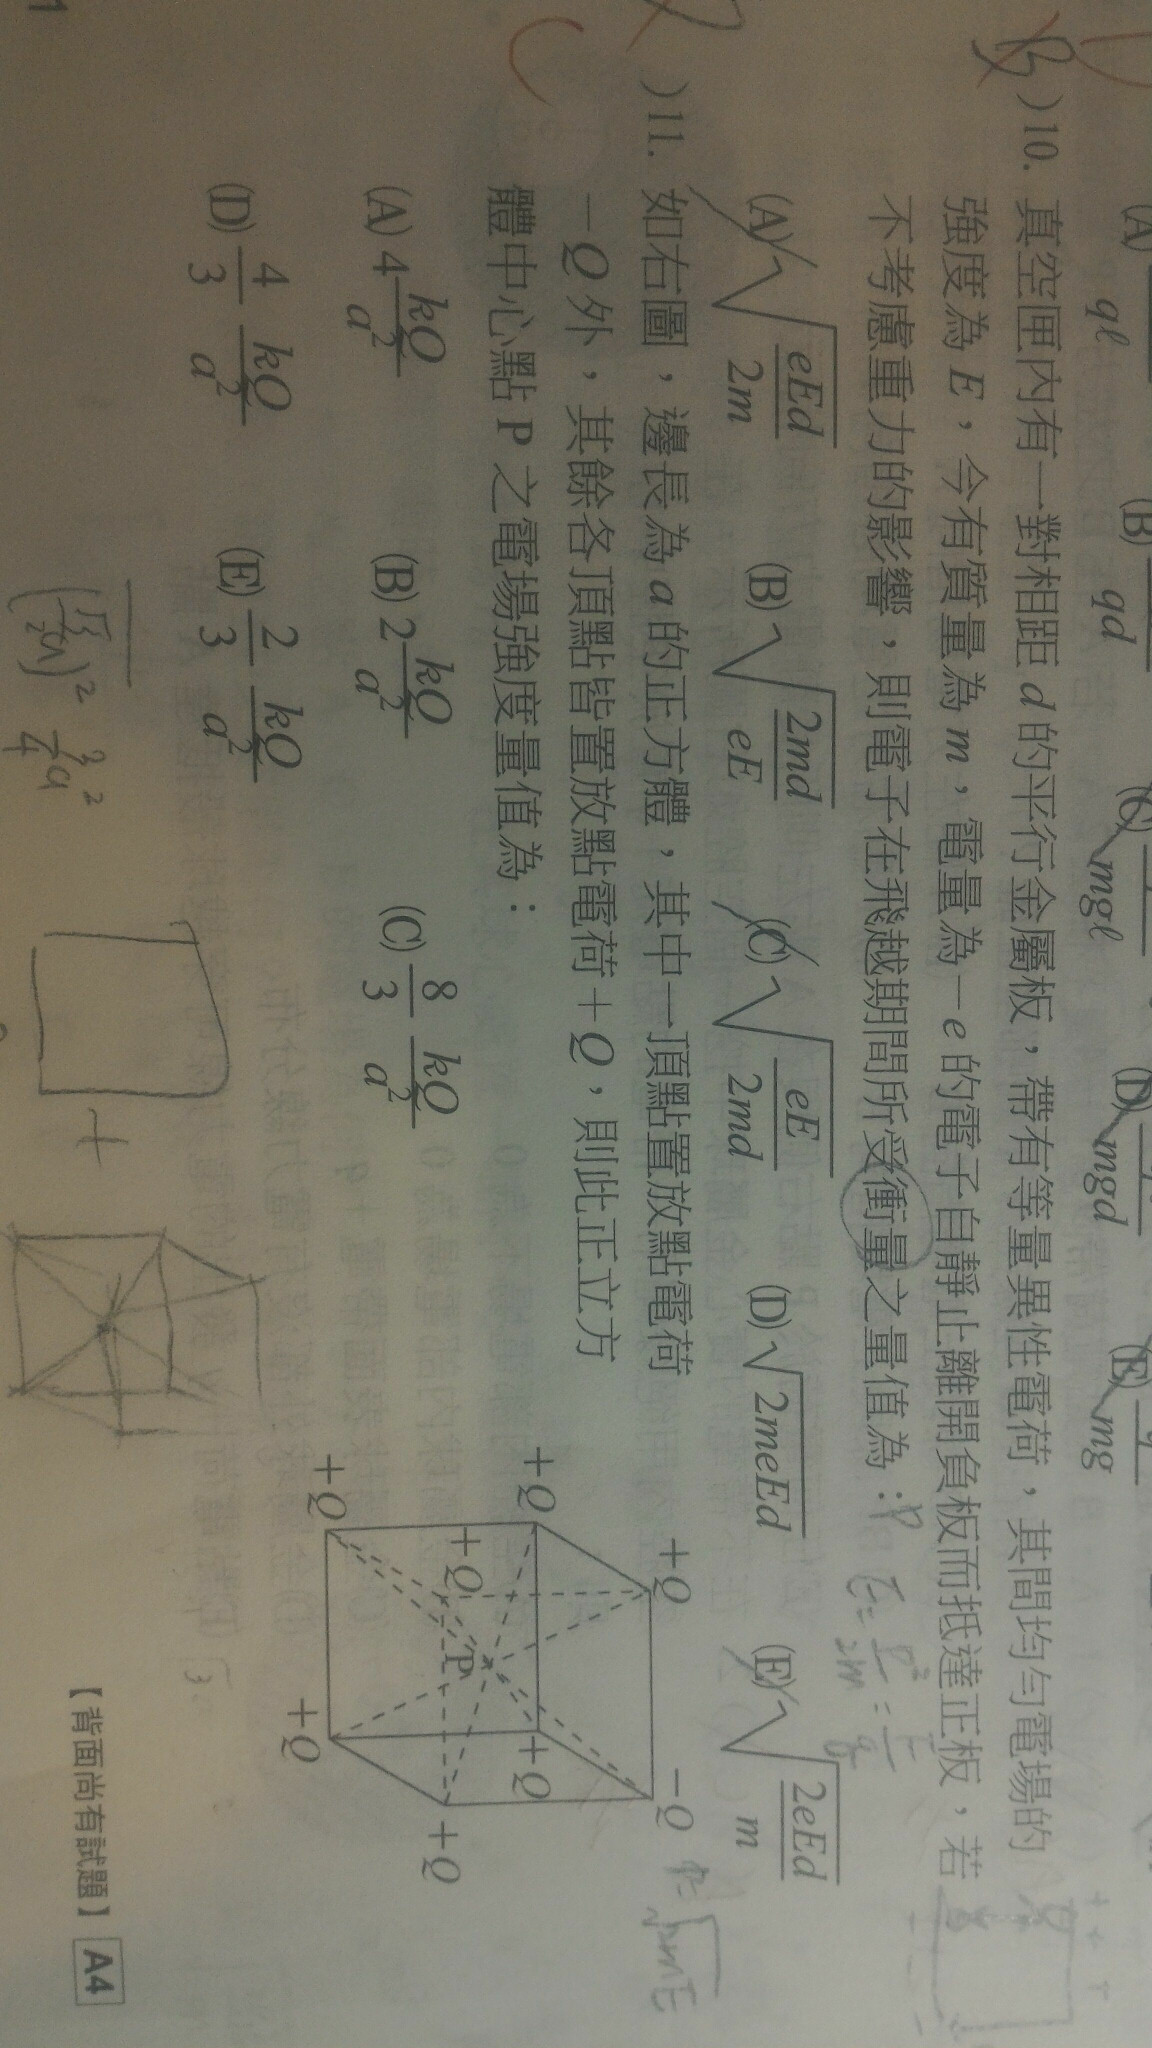 (A) ql (B) qd (C) mgl (D) mgd (E) mg
B )10. 真空匣內有一對相距 d 的平行金屬板，帶有等量異性電荷，其間均勻電場的
強度為 E，今有質量為 m，電量為－e 的電子自靜止離開負板而抵達正板，若
不考慮重力的影響，則電子在飛越期間所受衝量之量值為：P
(A) √(eEd/2m) (B) √(2md/eE) (C) √(eE/2md) (D) √(2meEd) (E) √(2eEd/m)
)11. 如右圖，邊長為 a 的正方體，其中一頂點置放點電荷
－Q 外，其餘各頂點皆置放點電荷＋Q，則此正立方
體中心點 P 之電場強度量值為：
(A) 4 kQ/a² (B) 2 kQ/a² (C) 8/3 kQ/a²
(D) 4/3 kQ/a² (E) 2/3 kQ/a²
+Q －Q
+Q +Q
+Q P +Q
+Q +Q
C
+
【背面尚有試題】 A4